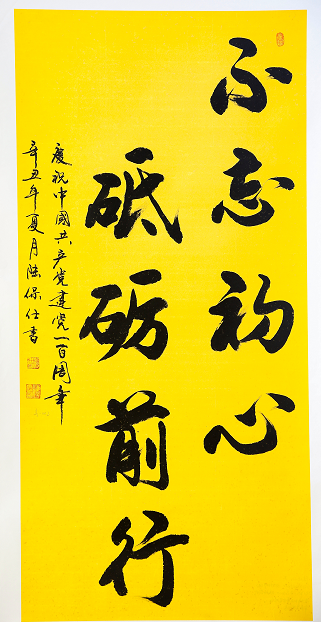 不忘初心
砥砺前行
庆祝中國共产党建党一百周年
辛丑年夏月陆保仕書